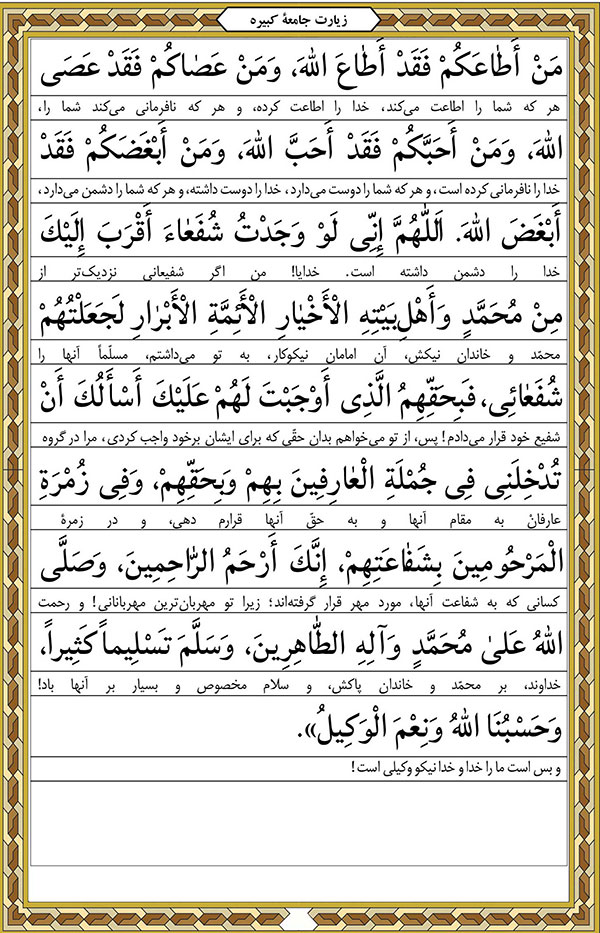 زیارت جامعهٔ کبیره
مَنْ أَطٰاعَكُمْ فَقَدْ أَطٰاعَ اللهَ، وَمَنْ عَصٰاكُمْ فَقَدْ عَصَى
هر که شما را اطاعت می‌کند، خدا را اطاعت کرده، و هر که نافرمانی می‌کند شما را،
اللهَ، وَمَنْ أَحَبَّكُمْ فَقَدْ أَحَبَّ اللهَ، وَمَنْ أَبْغَضَكُمْ فَقَدْ
خدا را نافرمانی کرده است، و هر که شما را دوست می‌دارد، خدا را دوست داشته، و هر که شما را دشمن می‌دارد،
أَبْغَضَ اللهَ. اَللّٰهُمَّ إِنِّى لَوْ وَجَدْتُ شُفَعٰاءَ أَقْرَبَ إِلَيْكَ
خدا را دشمن داشته است. خدایا! من اگر شفیعانی نزدیک‌تر از
مِنْ مُحَمَّدٍ وَأَهْلِ‌بَيْتِهِ الْأَخْيٰارِ الْأَئِمَّةِ الْأَبْرٰارِ لَجَعَلْتُهُمْ
محمّد و خاندان نیکش، آن امامان نیکوکار، به تو می‌داشتم، مسلّماً آنها را
شُفَعٰائِى، فَبِحَقِّهِمُ الَّذِى أَوْجَبْتَ لَهُمْ عَلَيْكَ أَسْأَلُكَ أَنْ
شفیع خود قرار می‌دادم! پس، از تو می‌خواهم بدان حقّی که برای ایشان برخود واجب کردی، مرا در گروه
تُدْخِلَنِى فِى جُمْلَةِ الْعٰارِفِينَ بِهِمْ وَبِحَقِّهِمْ، وَفِى زُمْرَةِ
عارفانْ به مقام آنها و به حقّ آنها قرارم دهی، و در زمرهٔ
الْمَرْحُومِينَ بِشَفٰاعَتِهِمْ، إِنَّكَ أَرْحَمُ الرّٰاحِمِينَ، وَصَلَّى
کسانی که به شفاعت آنها، مورد مهر قرار گرفته‌اند؛ زیرا تو مهربان‌ترین مهربانانی! و رحمت
اللهُ عَلىٰ مُحَمَّدٍ وَآلِهِ الطّٰاهِرِينَ، وَسَلَّمَ تَسْلِيماً كَثِيراً،
خداوند، بر محمّد و خاندان پاکش، و سلام مخصوص و بسیار بر آنها باد!
وَحَسْبُنَا اللهُ وَنِعْمَ الْوَكِيلُ».
و بس است ما را خدا و خدا نیکو وکیلی است!